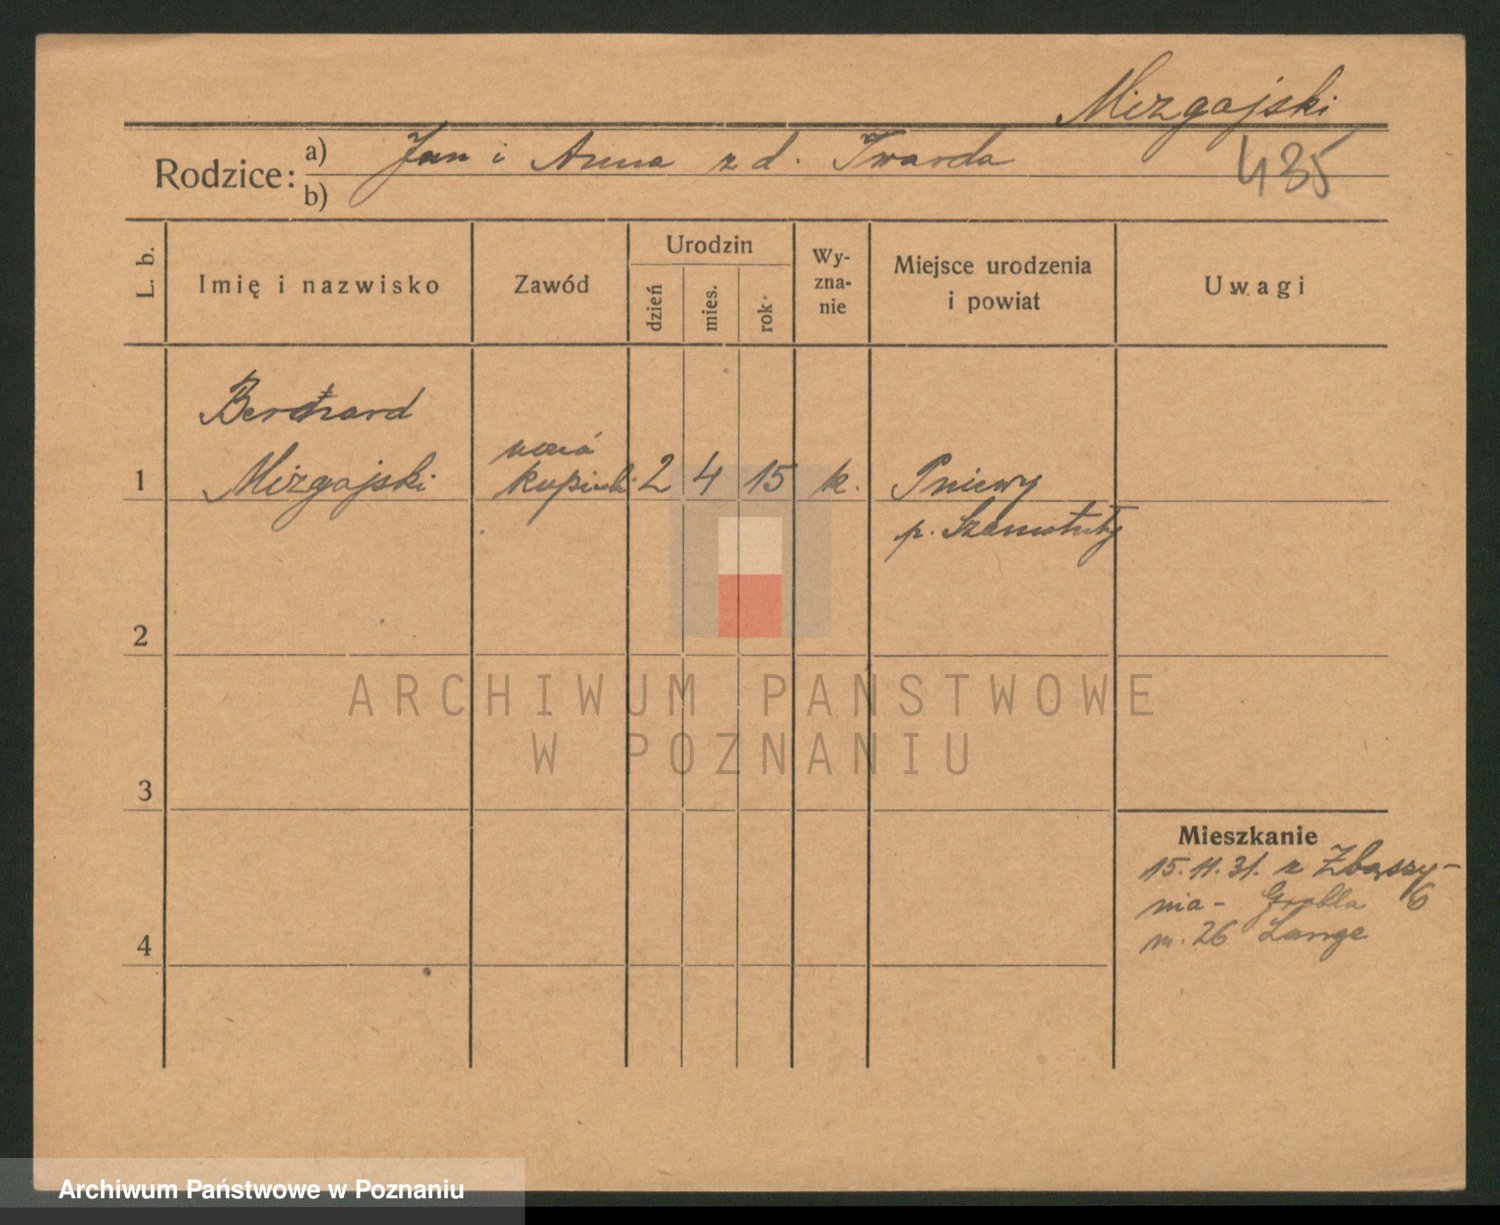 Mizgajski
Rodzice:
a) Jan i Anna z d. Twarda
b)
435
L. b.
Imię i nazwisko
Zawód
Urodzin
dzień
mies.
rok
Wy-
zna-
nie
Miejsce urodzenia
i powiat
Uwagi
Bernard
1 Mizgajski
2 4 15 k. Pniewy
p. Szamotuły
2
3
4
Mieszkanie
15.11.31. z Zbąszy-
nia - Grobla 6
m. 26 Lange
ARCHIWUM PAŃSTWOWE
W POZNANIU
Archiwum Państwowe w Poznaniu